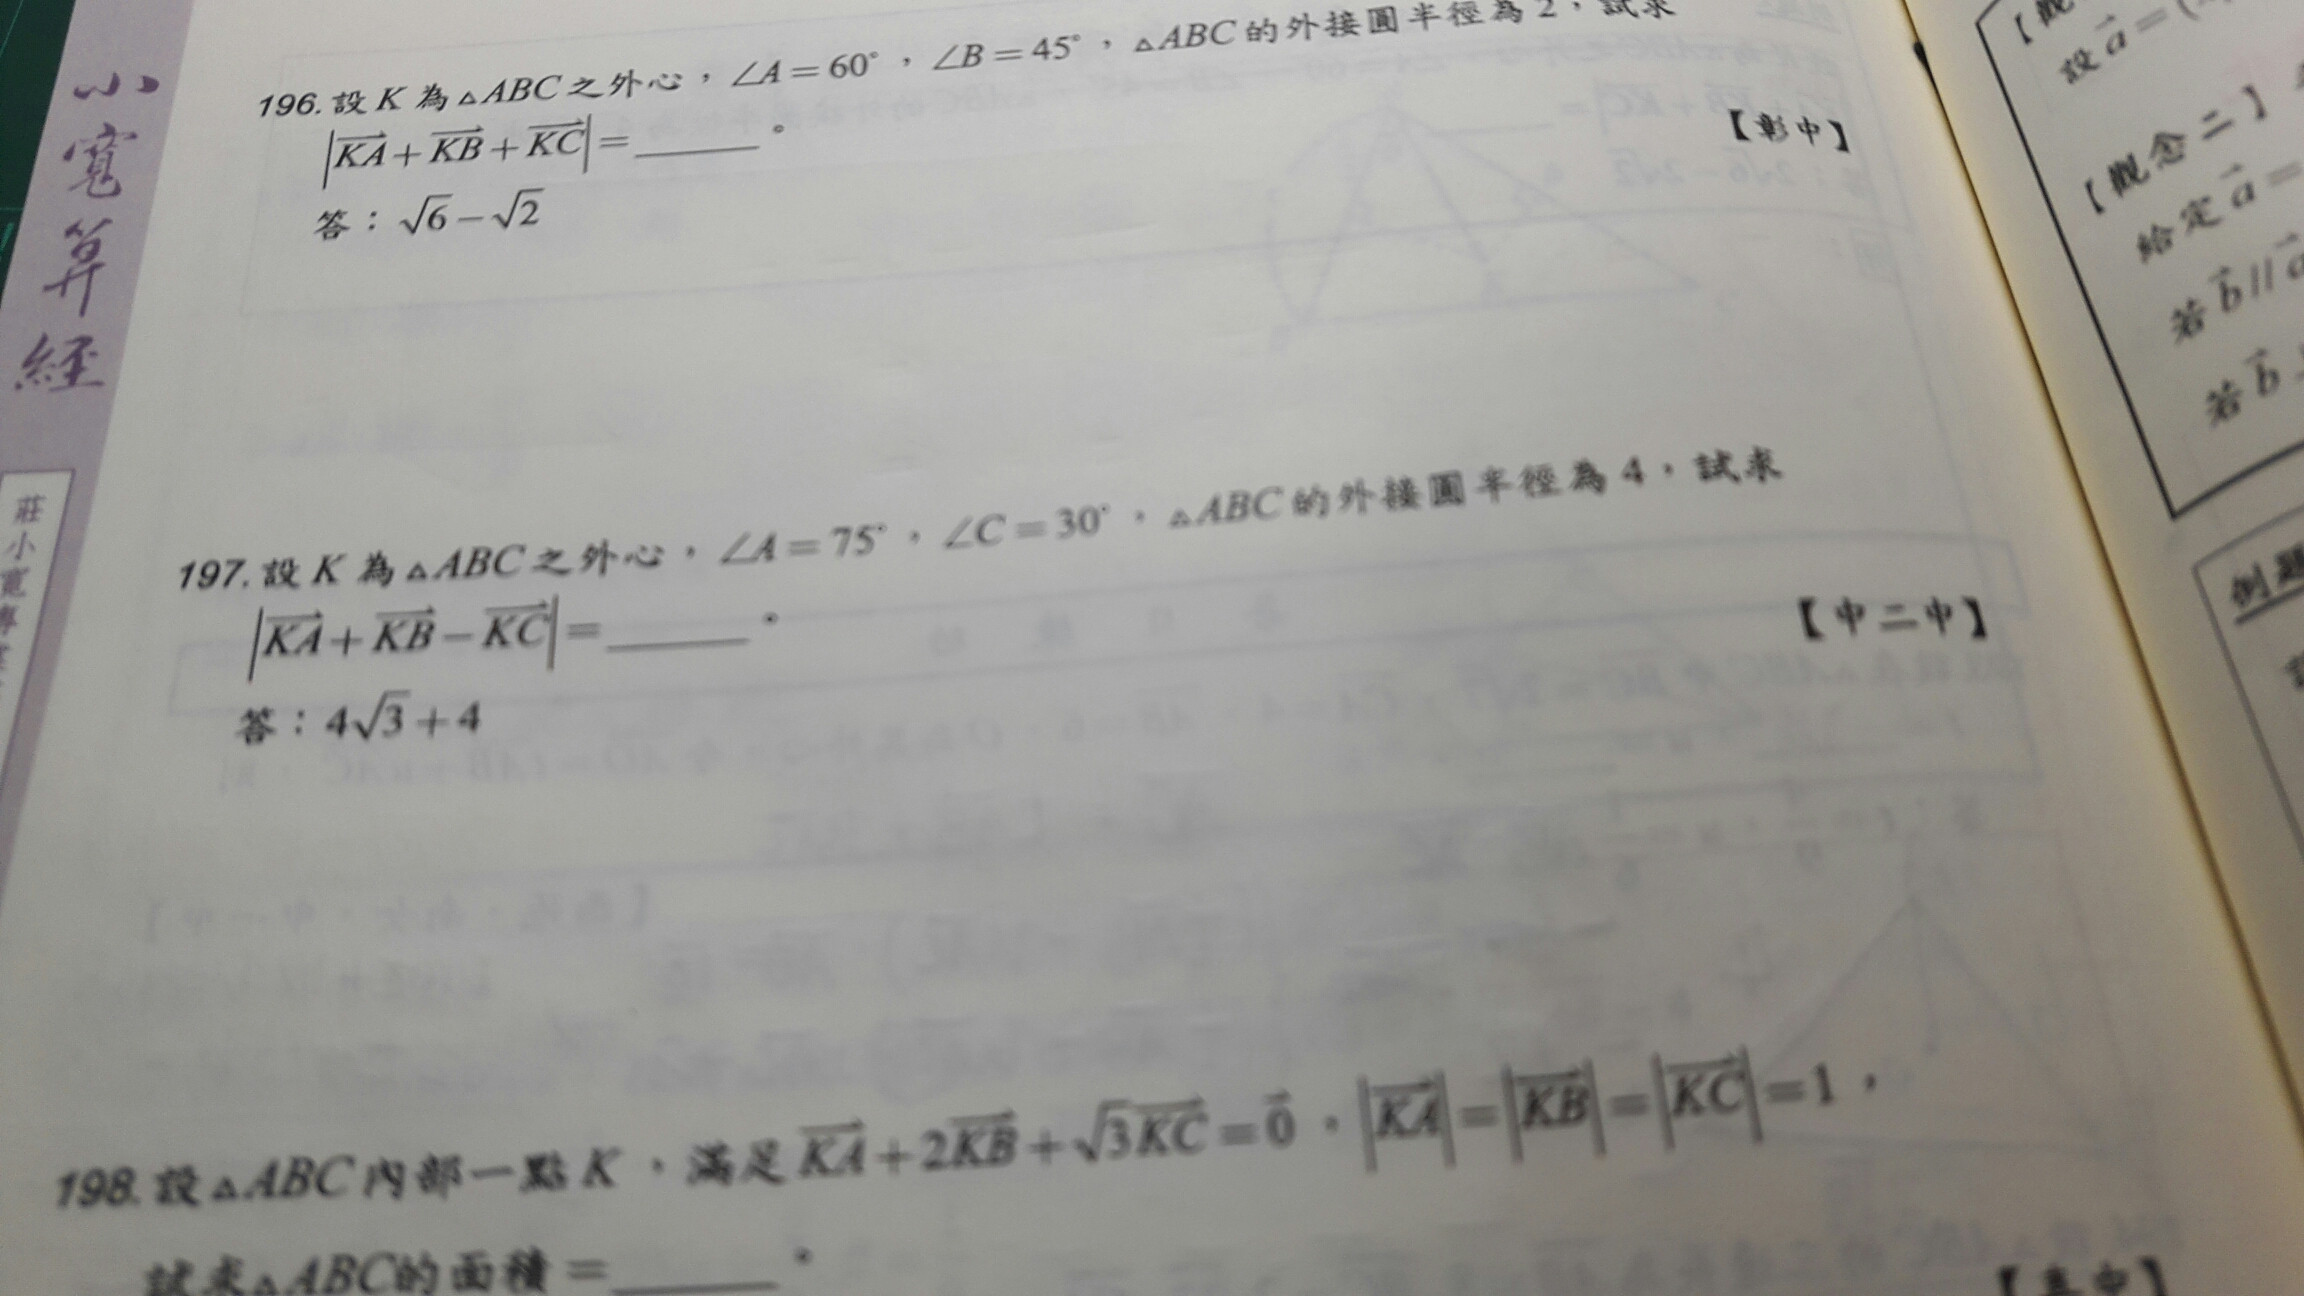 小寬算經
莊小寬專
196. 設 K 為 △ABC 之外心，∠A＝60°，∠B＝45°，△ABC 的外接圓半徑為 2，試求
|KA⃗＋KB⃗＋KC⃗|＝______。 【彰中】
答：√6－√2
197. 設 K 為 △ABC 之外心，∠A＝75°，∠C＝30°，△ABC 的外接圓半徑為 4，試求
|KA⃗＋KB⃗－KC⃗|＝______。 【中二中】
答：4√3＋4
198. 設 △ABC 內部一點 K，滿足 KA⃗＋2KB⃗＋√3KC⃗＝0⃗，|KA⃗|＝|KB⃗|＝|KC⃗|＝1，
試求△ABC的面積＝______。
【觀
設 a⃗＝(
【觀念二】
給定 a⃗＝
若 b⃗ // a⃗
若 b⃗
例題